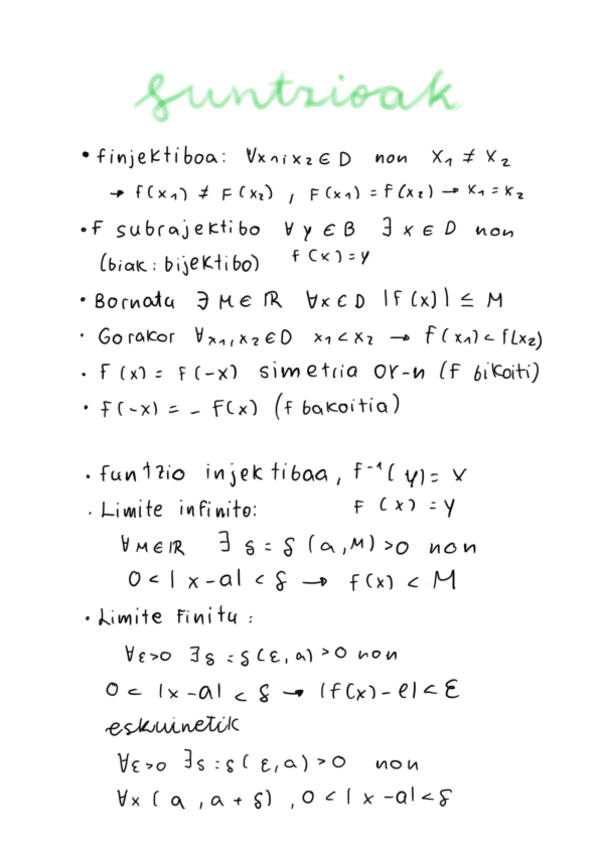 funtzioak
• f injektiboa: ∀x₁, x₂ ∈ D non x₁ ≠ x₂
→ f(x₁) ≠ F(x₂), F(x₁) = f(x₂) → x₁ = x₂
• F subrajektibo ∀ y ∈ B ∃ x ∈ D non
(biak: bijektibo) f(x) = y
• Bornatu ∃ M ∈ ℝ ∀x ∈ D |f(x)| ≤ M
• Gorakor ∀x₁, x₂ ∈ D x₁ < x₂ → f(x₁) < f(x₂)
• F(x) = F(-x) simetria OY-n (f bikoiti)
• f(-x) = - F(x) (f bakoitia)
• funtzio injektibaa, f⁻¹(y) = x
• Limite infinito: F(x) = y
∀M∈ℝ ∃ δ = δ(a, M) > 0 non
0 < |x-a| < δ → f(x) < M
• Limite Finitu:
∀ε>0 ∃δ = δ(ε, a) > 0 non
0 < |x-a| < δ → |f(x) - l| < ε
eskuinetik
∀ε>0 ∃δ = δ(ε, a) > 0 non
∀x (a, a + δ), 0 < |x-a| < δ